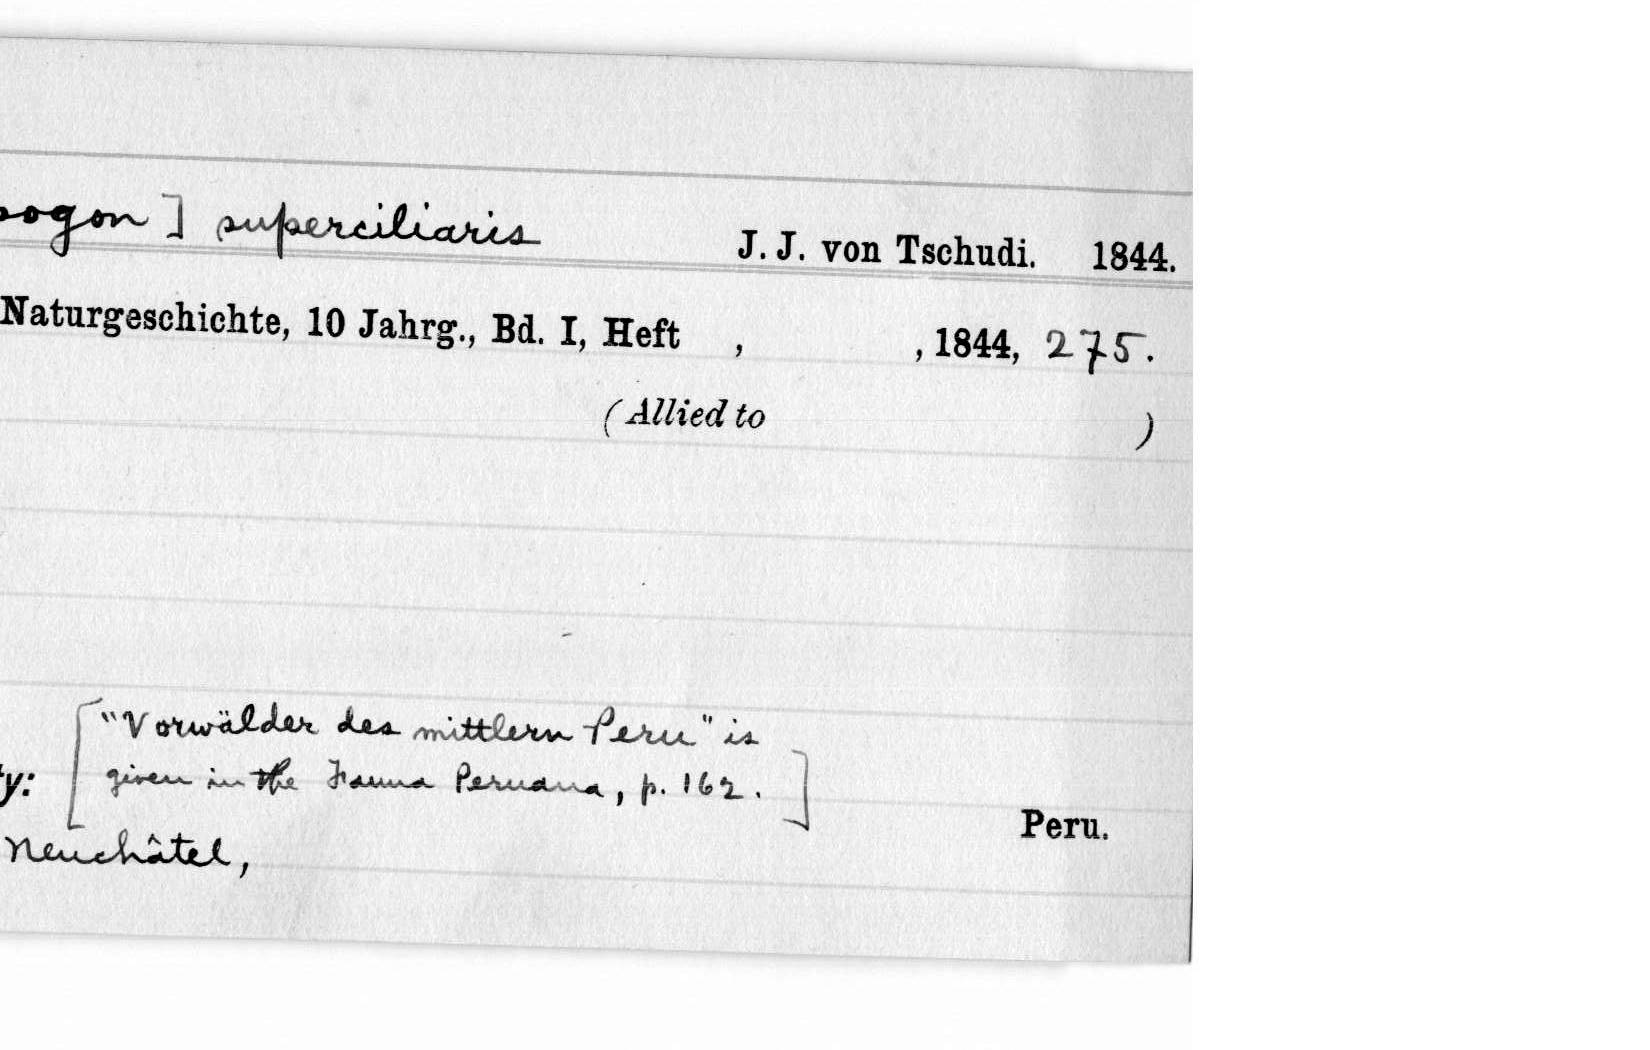 pogon] superciliaris J. J. von Tschudi. 1844.
Naturgeschichte, 10 Jahrg., Bd. I, Heft , , 1844, 275.
(Allied to )
["Vorwälder des mittlern Peru" is
ty: given in the Fauna Peruana, p. 162.]
Peru.
Neuchâtel,